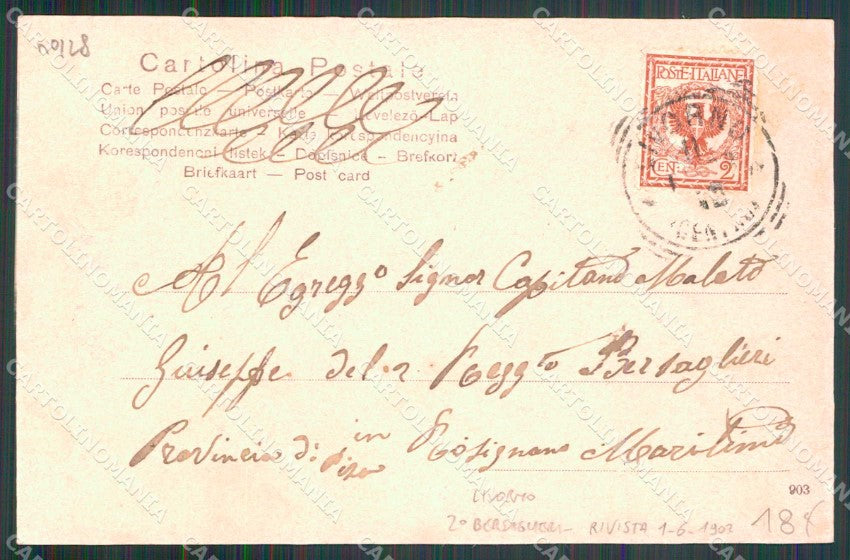 60128
Cartolina Postale
Carte Postale — Postkarte — Weltpostverein
Union postale universelle — Levelező-Lap
Correspondenzkarte — Karta korespondencyjna
Korespondencni listek — Dopisnice — Brefkort
Briefkaart — Post card
POSTE·ITALIANE
CEN. 2
LIVORNO
Al Egreggio Signor Capitano Maleto
Giuseppe del 2 Reggto Bersaglieri
Provincia di Pisa in Rosignano Maritimo
903
LIVORNO
2° BERSAGLIERI — RIVISTA 1-6-1902
18
CARTOLINOMANIA